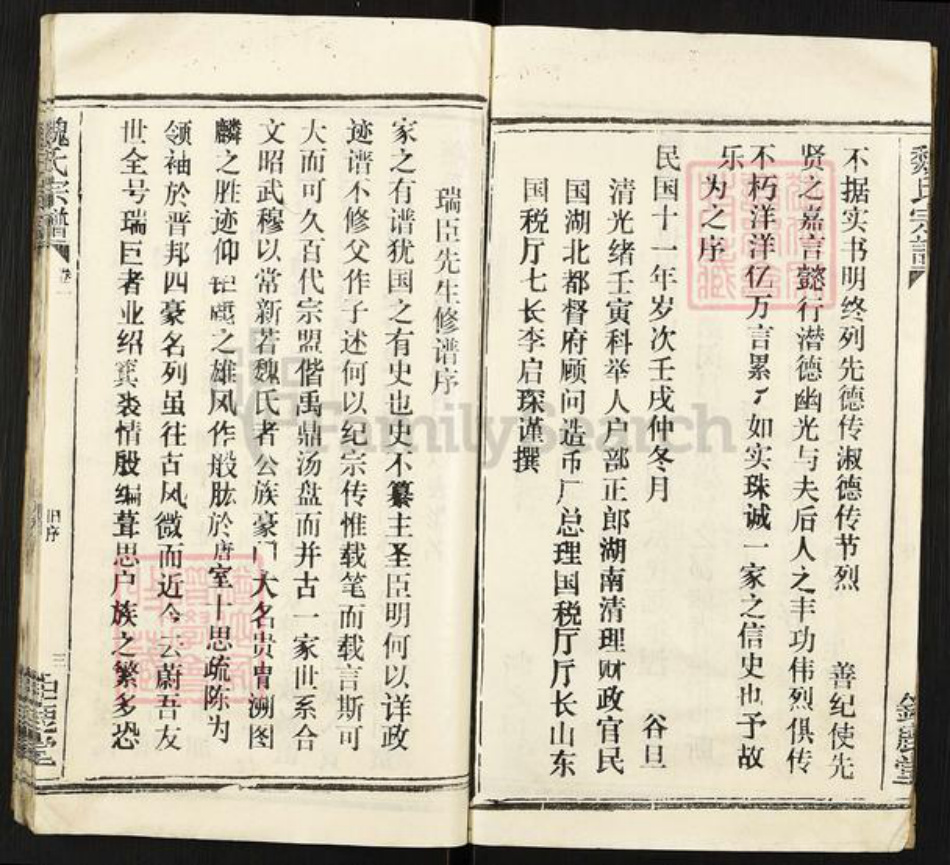 魏氏宗谱
不据实书明终列先德传淑德传节烈 善纪使先
贤之嘉言懿行潜德幽光与夫后人之丰功伟烈俱传
不朽洋洋亿万言累々如实珠诚一家之信史也予故
乐为之序
民国十一年岁次壬戌仲冬月 谷旦
清光绪壬寅科举人户部正郎湖南清理财政官民
国湖北都督府顾问造币厂总理国税厅厅长山东
国税厅七长李启琛谨撰
瑞臣先生修谱序
家之有谱犹国之有史也史不纂主圣臣明何以详政
迹谱不修父作子述何以纪宗传惟载笔而载言斯可
大而可久百代宗盟偕禹鼎汤盘而并古一家世系合
文昭武穆以常新若魏氏者公族豪门大名贵胄溯图
麟之胜迹仰 之雄风作股肱於唐室十思疏陈为
领袖於晋邦四豪名列虽往古风微而近今云蔚吾友
世全号瑞臣者业绍箕裘情殷编葺思户族之繁多恐
魏氏宗谱
卷一
旧序
三
FamilySearch